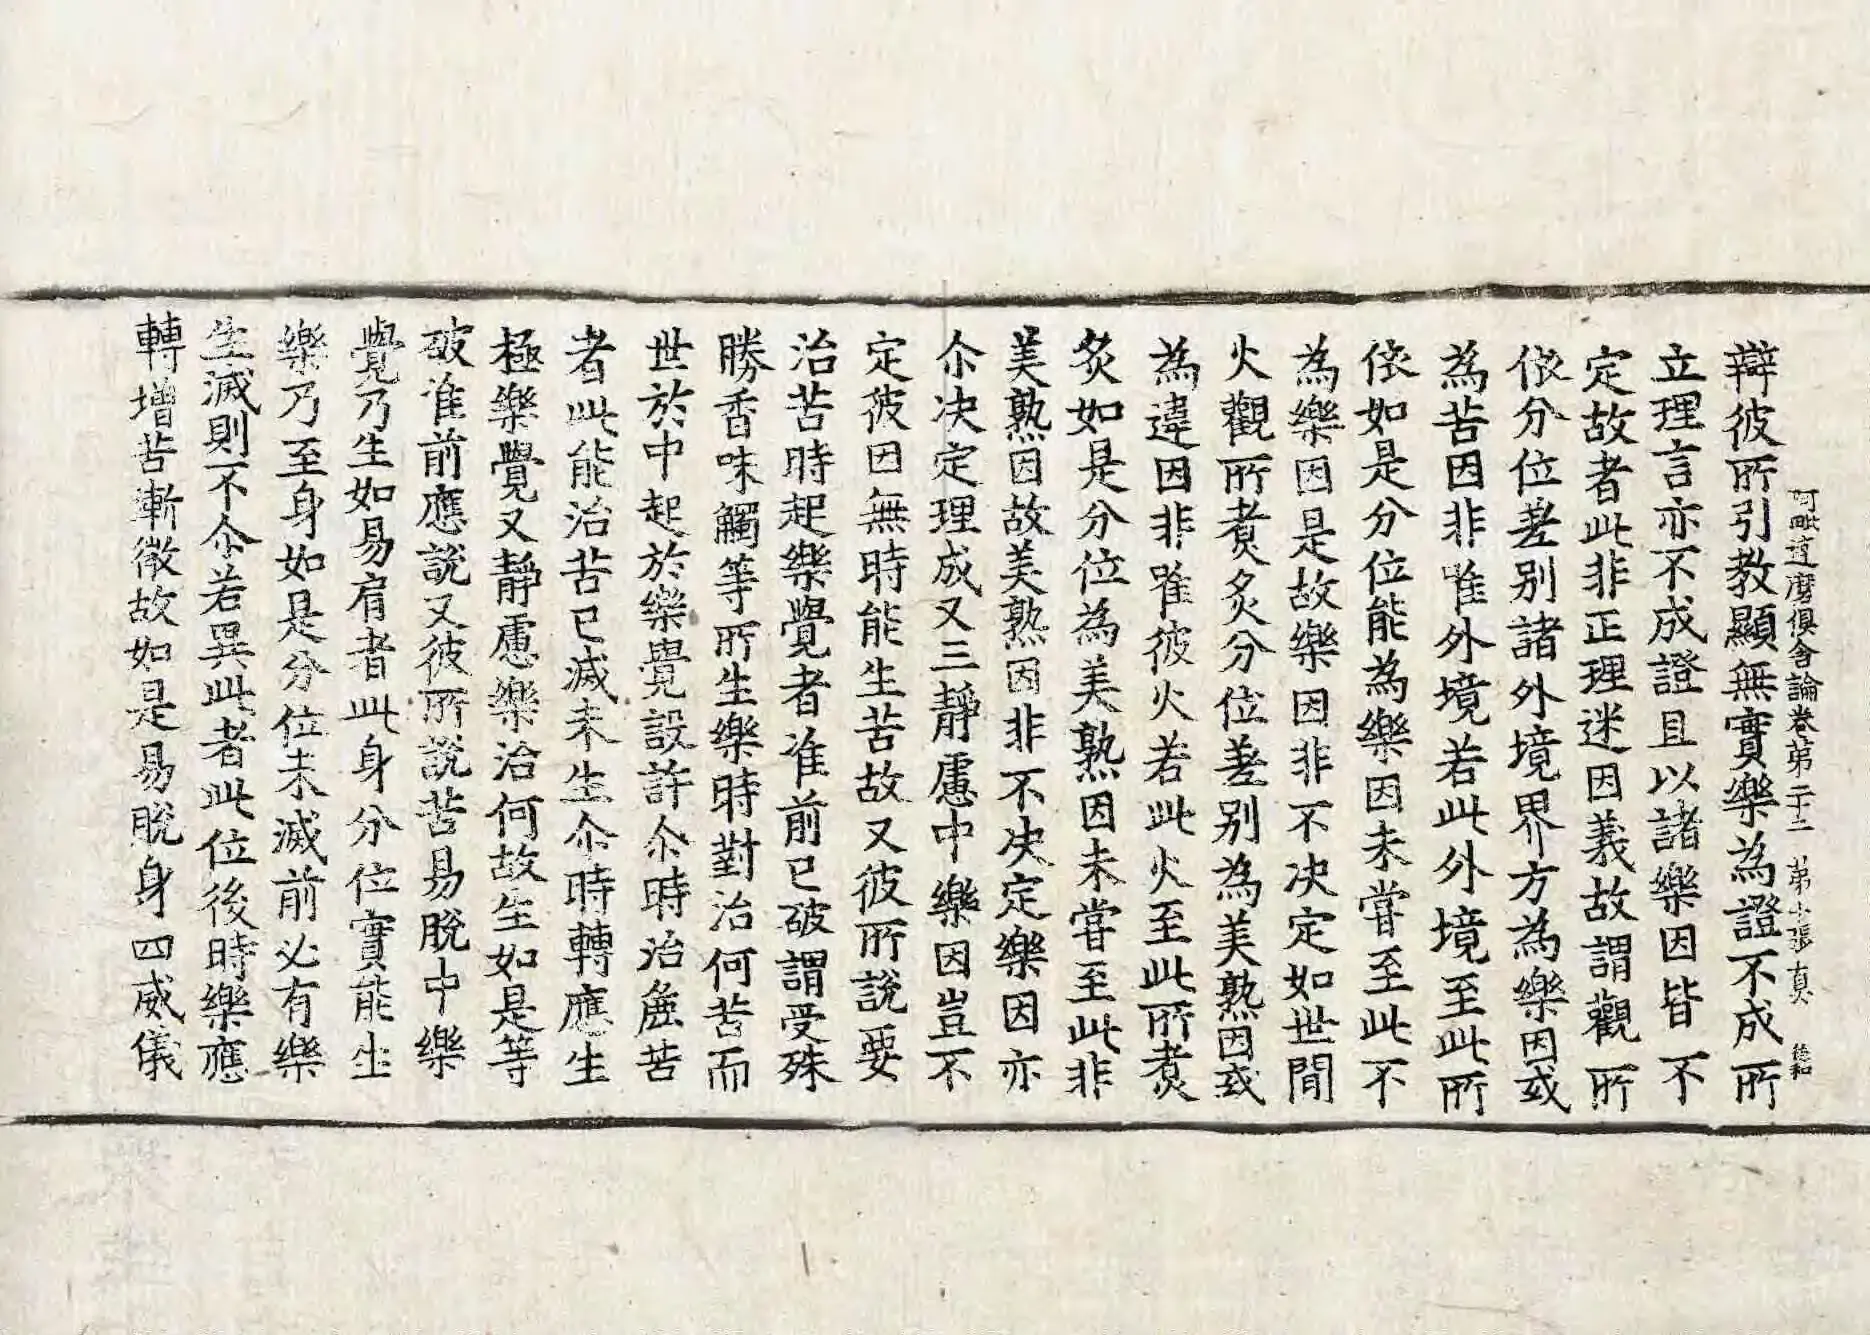 阿毗達磨俱舍論卷第二十二 第十張 真 德和
辯彼所引教顯無實樂為證不成所
立理言亦不成證且以諸樂因皆不
定故者此非正理迷因義故謂觀所
依分位差别諸外境界方為樂因或
為苦因非唯外境若此外境至此所
依如是分位能為樂因未嘗至此不
為樂因是故樂因非不决定如世間
火觀所煑炙分位差别為美熟因或
為違因非唯彼火若此火至此所煑
炙如是分位為美熟因未嘗至此非
美熟因故美熟因非不决定樂因亦
尒决定理成又三静慮中樂因豈不
定彼因無時能生苦故又彼所說要
治苦時起樂覺者准前已破謂受殊
勝香味觸等所生樂時對治何苦而
世於中起於樂覺設許尒時治麁苦
者此能治苦已滅未生尒時轉應生
極樂覺又静慮樂治何故生如是等
破准前應說又彼所說苦易脫中樂
覺乃生如易肩者此身分位實能生
樂乃至身如是分位未滅前必有樂
生滅則不尒若異此者此位後時樂應
轉增苦漸微故如是易脫身四威儀